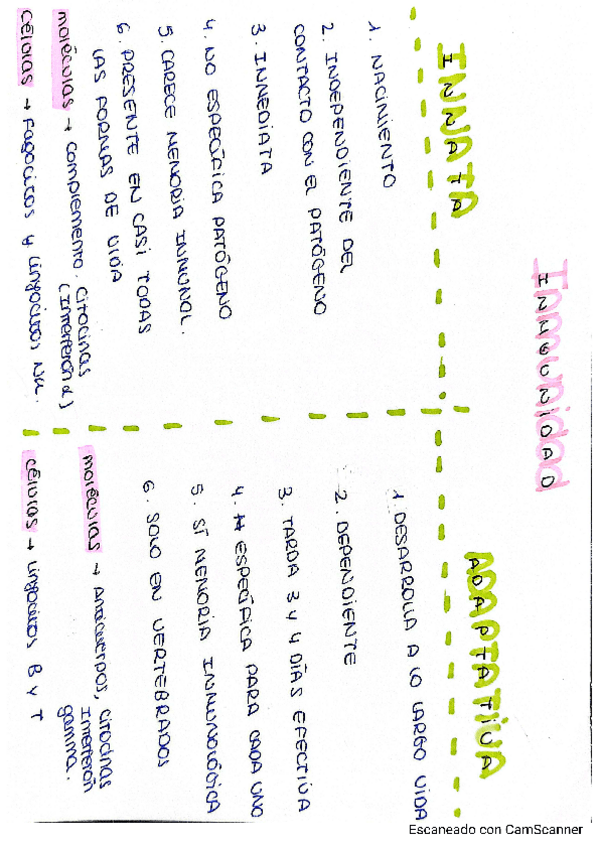 Inmunidad
INMUNIDAD
INNATA
INNATA
1. NACIMIENTO
2. INDEPENDIENTE DEL
CONTACTO CON EL PATÓGENO
3. INMEDIATA
4. NO ESPECÍFICA PATÓGENO
5. CARECE MEMORIA INMUNOL.
6. PRESENTE EN CASI TODAS
LAS FORMAS DE VIDA
moléculas → complemento, citocinas
(Interferón α)
células → Fagocitos y linfocitos NK.
ADAPTATIVA
ADAPTATIVA
1. DESARROLLA A LO LARGO VIDA
2. DEPENDIENTE
3. TARDA 3 y 4 DÍAS EFECTIVA
4. ESPECÍFICA PARA CADA UNO
5. SÍ MEMORIA INMUNOLÓGICA
6. SOLO EN VERTEBRADOS
moléculas → Anticuerpos, citocinas
Interferón
gamma.
células → linfocitos B y T
Escaneado con CamScanner